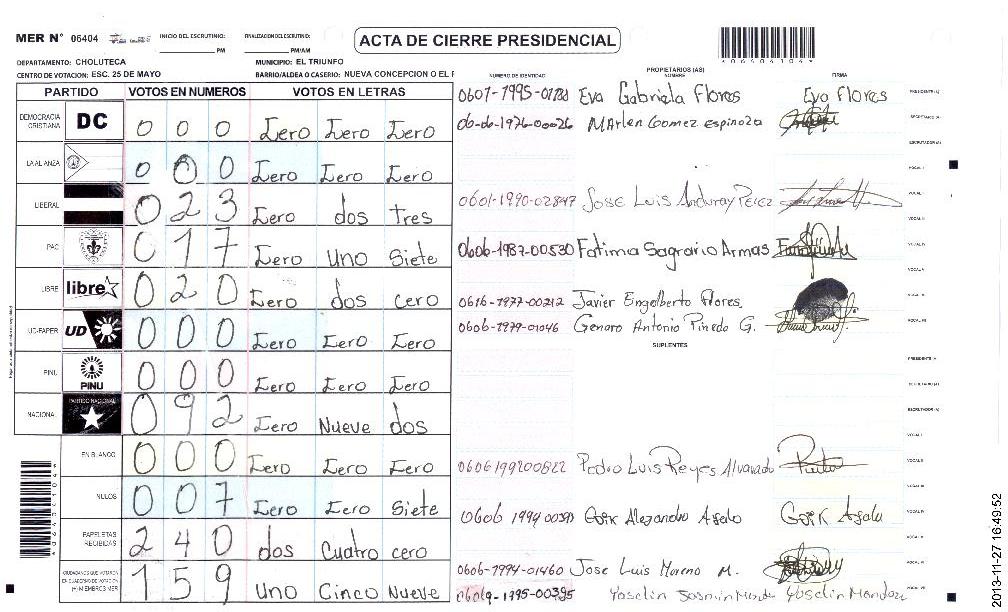 MER N° 06404
INICIO DEL ESCRUTINIO: PM
FINALIZACION DEL ESCRUTINIO: PM/AM
ACTA DE CIERRE PRESIDENCIAL
DEPARTAMENTO: CHOLUTECA
MUNICIPIO: EL TRIUNFO
CENTRO DE VOTACION: ESC. 25 DE MAYO
BARRIO/ALDEA O CASERIO: NUEVA CONCEPCION O EL F
PARTIDO VOTOS EN NUMEROS VOTOS EN LETRAS
DEMOCRACIA CRISTIANA DC 0 0 0 Zero Zero Zero
LA ALIANZA 0 0 0 Zero Zero Zero
LIBERAL 0 2 3 Zero dos tres
PAC 0 1 7 Zero Uno Siete
LIBRE libre 0 2 0 Zero dos cero
UD-FAPER UD 0 0 0 Zero Zero Zero
PINU PINU 0 0 0 Zero Zero Zero
NACIONAL PARTIDO NACIONAL 0 9 2 Zero Nueve dos
EN BLANCO 0 0 0 Zero Zero Zero
NULOS 0 0 7 Zero Zero Siete
PAPELETAS RECIBIDAS 2 4 0 dos Cuatro cero
CIUDADANOS QUE VOTARON EN CUADERNO DE VOTACION (+) MIEMBROS MER 1 5 9 Uno Cinco Nueve
NUMERO DE IDENTIDAD PROPIETARIOS (AS) NOMBRE FIRMA
Eva Gabriela Flores Eva Flores PRESIDENTE (A)
Marlen Gomez espinoza SECRETARIO (A)
ESCRUTADOR (A)
VOCAL I
0601-1990-02847 Jose Luis Anduray Perez
0606-1987-00530 Fatima Sagrario Armas
0616-1977-00212 Javier Engelberto Flores.
0606-1979-01046 Genaro Antonio Pineda G.
SUPLENTES
PRESIDENTE (A)
SECRETARIO (A)
ESCRUTADOR (A)
VOCAL I
0606199200822 Pedro Luis Reyes Alvarado
Alejandro
0606-1994-01460 Jose Luis Moreno M.
Yoselin
2013-11-27 16:49:52